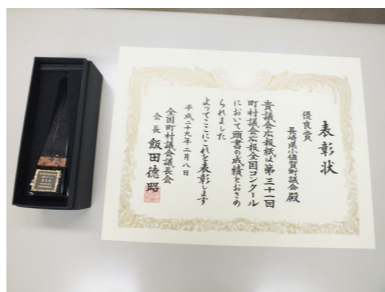 表彰状
優良賞
長崎県小値賀町議会殿
貴議会広報紙は第三十一回
町村議会広報全国コンクール
において頭書の成績をおさめ
られました
よってここにこれを表彰します
平成二十九年二月八日
全国町村議会議長会
会長 飯田徳昭